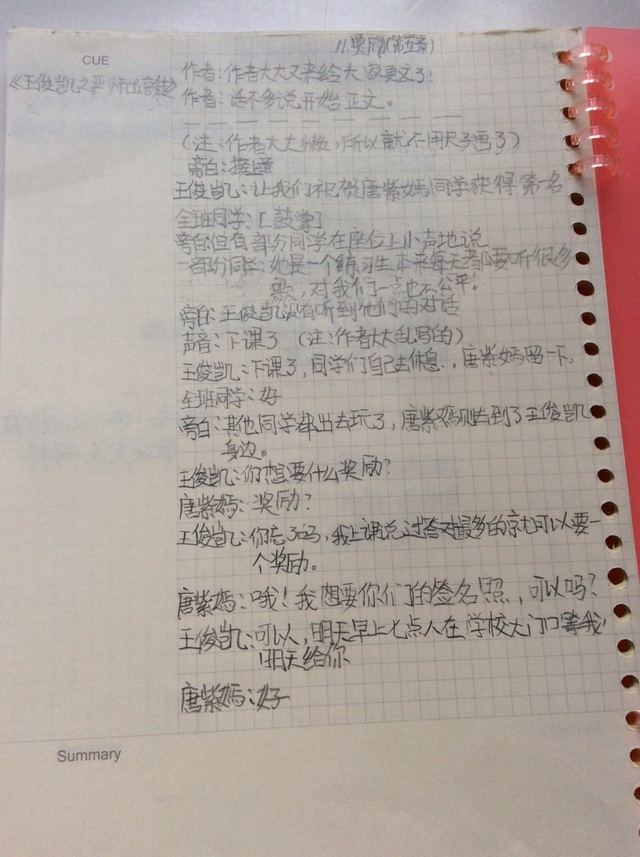 CUE
《王俊凯之严师出高徒》
11.奖励(第五章)
作者:作者大大又来给大家更文了!
作者:话不多说开始正文。
— — — — — — — — — —
(注:作者大大懒,所以就不用尺子画了)
旁白:接上章
王俊凯:让我们祝贺唐紫嫣同学获得第一名
全班同学:[鼓掌]
旁白:但有部分同学在座位上小声地说
一部分同学:她是一个练习生本来每天都要听很多
歌,对我们一点也不公平。
旁白:王俊凯没有听到他们的对话
声音:下课了 (注:作者大大乱写的)
王俊凯:下课了,同学们自己去休息.,唐紫嫣留一下。
全班同学:好
旁白:其他同学都出去玩了,唐紫嫣则去到了王俊凯
身边。
王俊凯:你想要什么奖励?
唐紫嫣:奖励?
王俊凯:你忘了吗,我上课说过答对最多的就可以要一
个奖励。
唐紫嫣:哦!我想要你们的签名照,可以吗?
王俊凯:可以,明天早上七点人在学校大门口等我,
明天给你
唐紫嫣:好
Summary